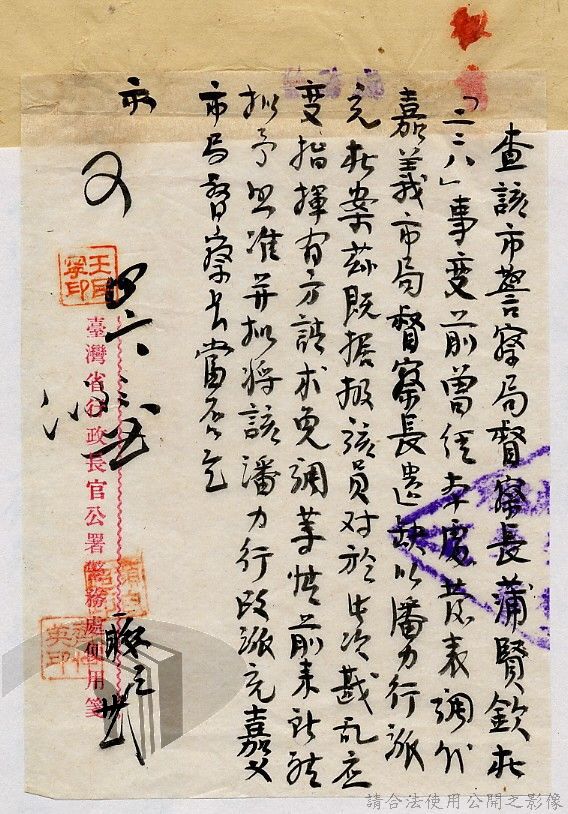 查該市警察局督察長蒲賢欽於
「二二八」事變前曾經本處發表調代
嘉義市局督察長遺缺以潘力行派
充在案茲既据报該員对於此次戡乱应
变指揮有方請求免調等情前來
拟予照准并拟將該潘力行改派充嘉义
市局督察長當否乞
示
四、六
臺灣省行政長官公署警務處便用箋
請合法使用公開之影像